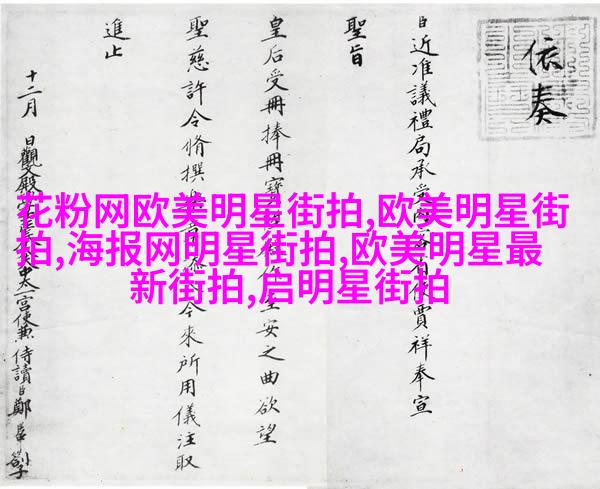 依奏
臣近准議禮局承受賈祥奉宣
聖旨
皇后受冊捧冊寶至安之曲欲望
聖慈許令脩撰今來所用儀注取
進止
十二月 日觀文殿太一宮使兼侍讀臣鄭劄子
花粉网欧美明星街拍,欧美明星街
拍,海报网明星街拍,欧美明星最
新街拍,启明星街拍